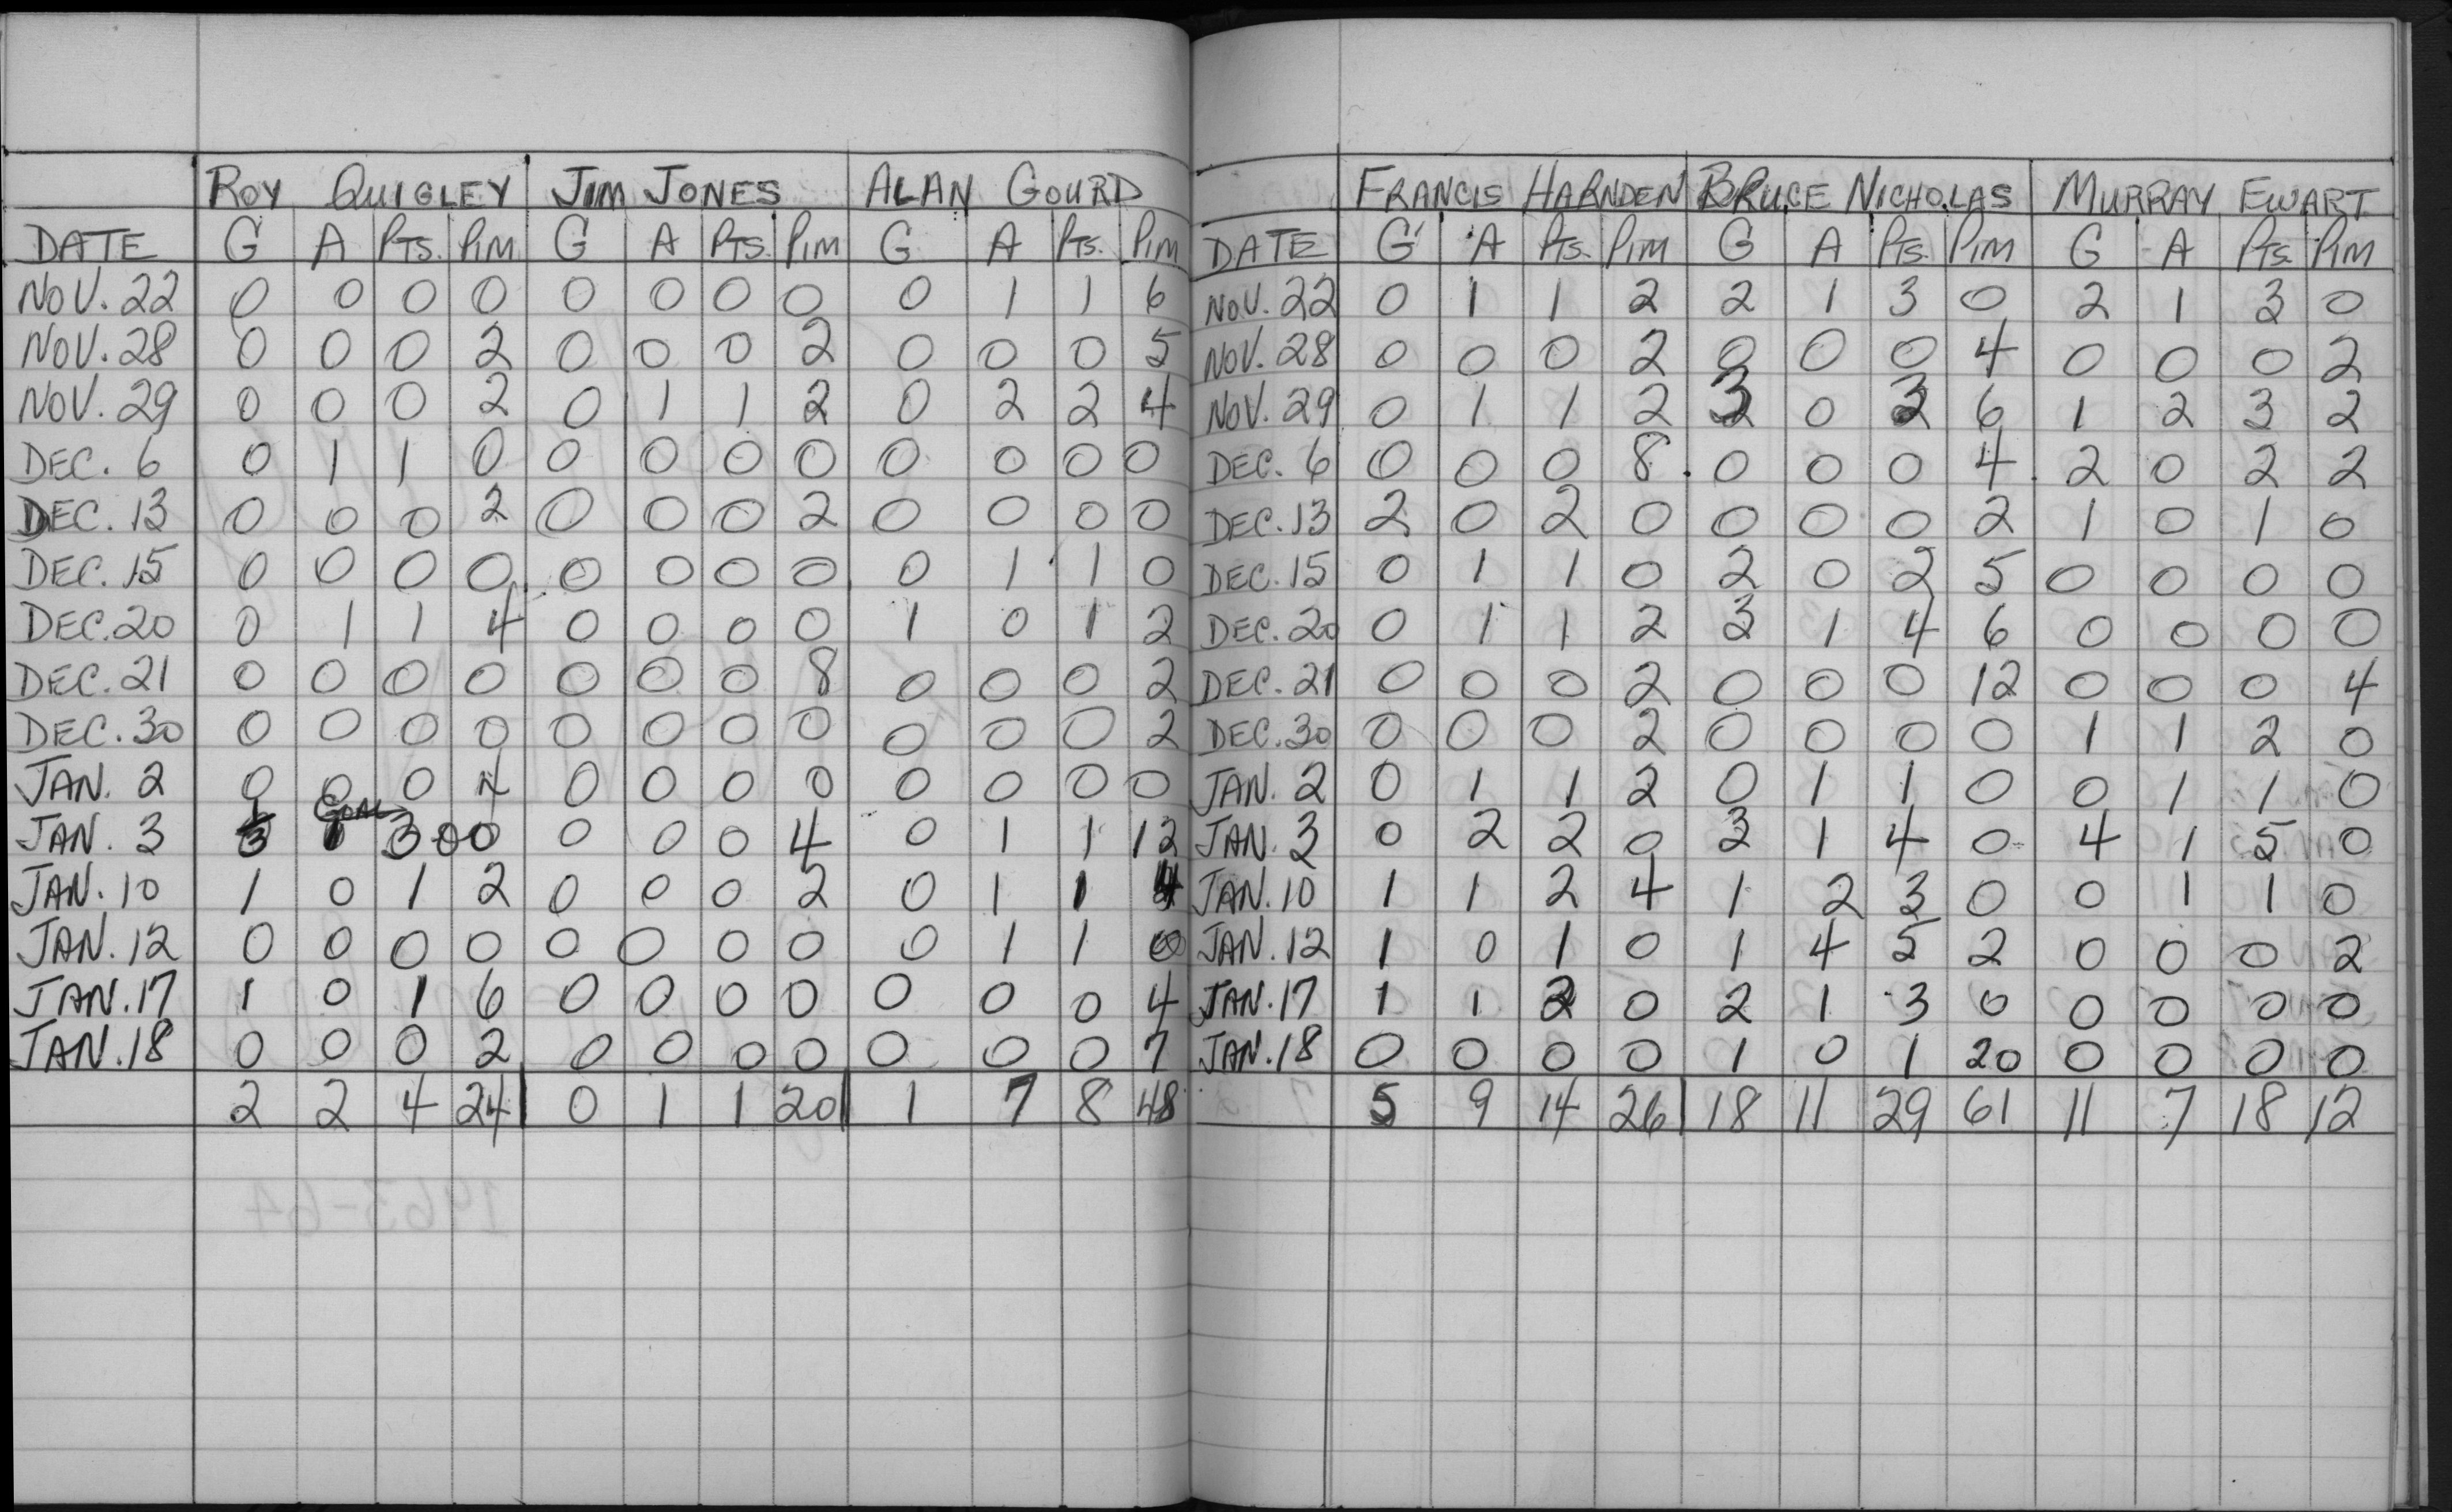 ROY QUIGLEY JIM JONES ALAN GOURD
DATE G A PTS. PIM G A PTS. PIM G A PTS. PIM
NOV. 22 0 0 0 0 0 0 0 0 0 1 1 6
NOV. 28 0 0 0 2 0 0 0 2 0 0 0 5
NOV. 29 0 0 0 2 0 1 1 2 0 2 2 4
DEC. 6 0 1 1 0 0 0 0 0 0 0 0 0
DEC. 13 0 0 0 2 0 0 0 2 0 0 0 0
DEC. 15 0 0 0 0 0 0 0 0 0 1 1 0
DEC. 20 0 1 1 4 0 0 0 0 1 0 1 2
DEC. 21 0 0 0 0 0 0 0 8 0 0 0 2
DEC. 30 0 0 0 0 0 0 0 0 0 0 0 2
JAN. 2 0 0 0 4 0 0 0 0 0 0 0 0
GOAL
JAN. 3 3 300 0 0 0 4 0 1 1 12
JAN. 10 1 0 1 2 0 0 0 2 0 1 1 4
JAN. 12 0 0 0 0 0 0 0 0 0 1 1 0
JAN. 17 1 0 1 6 0 0 0 0 0 0 0 4
JAN. 18 0 0 0 2 0 0 0 0 0 0 0 7
2 2 4 24 0 1 1 20 1 7 8 48
FRANCIS HARNDEN BRUCE NICHOLAS MURRAY EWART
DATE G A PTS. PIM G A PTS. PIM G A PTS. PIM
NOV. 22 0 1 1 2 2 1 3 0 2 1 3 0
NOV. 28 0 0 0 2 0 0 0 4 0 0 0 2
NOV. 29 0 1 1 2 3 0 3 6 1 2 3 2
DEC. 6 0 0 0 8 0 0 0 4 2 0 2 2
DEC. 13 2 0 2 0 0 0 0 2 1 0 1 0
DEC. 15 0 1 1 0 2 0 2 5 0 0 0 0
DEC. 20 0 1 1 2 3 1 4 6 0 0 0 0
DEC. 21 0 0 0 2 0 0 0 12 0 0 0 4
DEC. 30 0 0 0 2 0 0 0 0 1 1 2 0
JAN. 2 0 1 1 2 0 1 1 0 0 1 1 0
JAN. 3 0 2 2 0 3 1 4 0 4 1 5 0
JAN. 10 1 1 2 4 1 2 3 0 0 1 1 0
JAN. 12 1 0 1 0 1 4 5 2 0 0 0 2
JAN. 17 1 1 2 0 2 1 3 0 0 0 0 0
JAN. 18 0 0 0 0 1 0 1 20 0 0 0 0
5 9 14 26 18 11 29 61 11 7 18 12